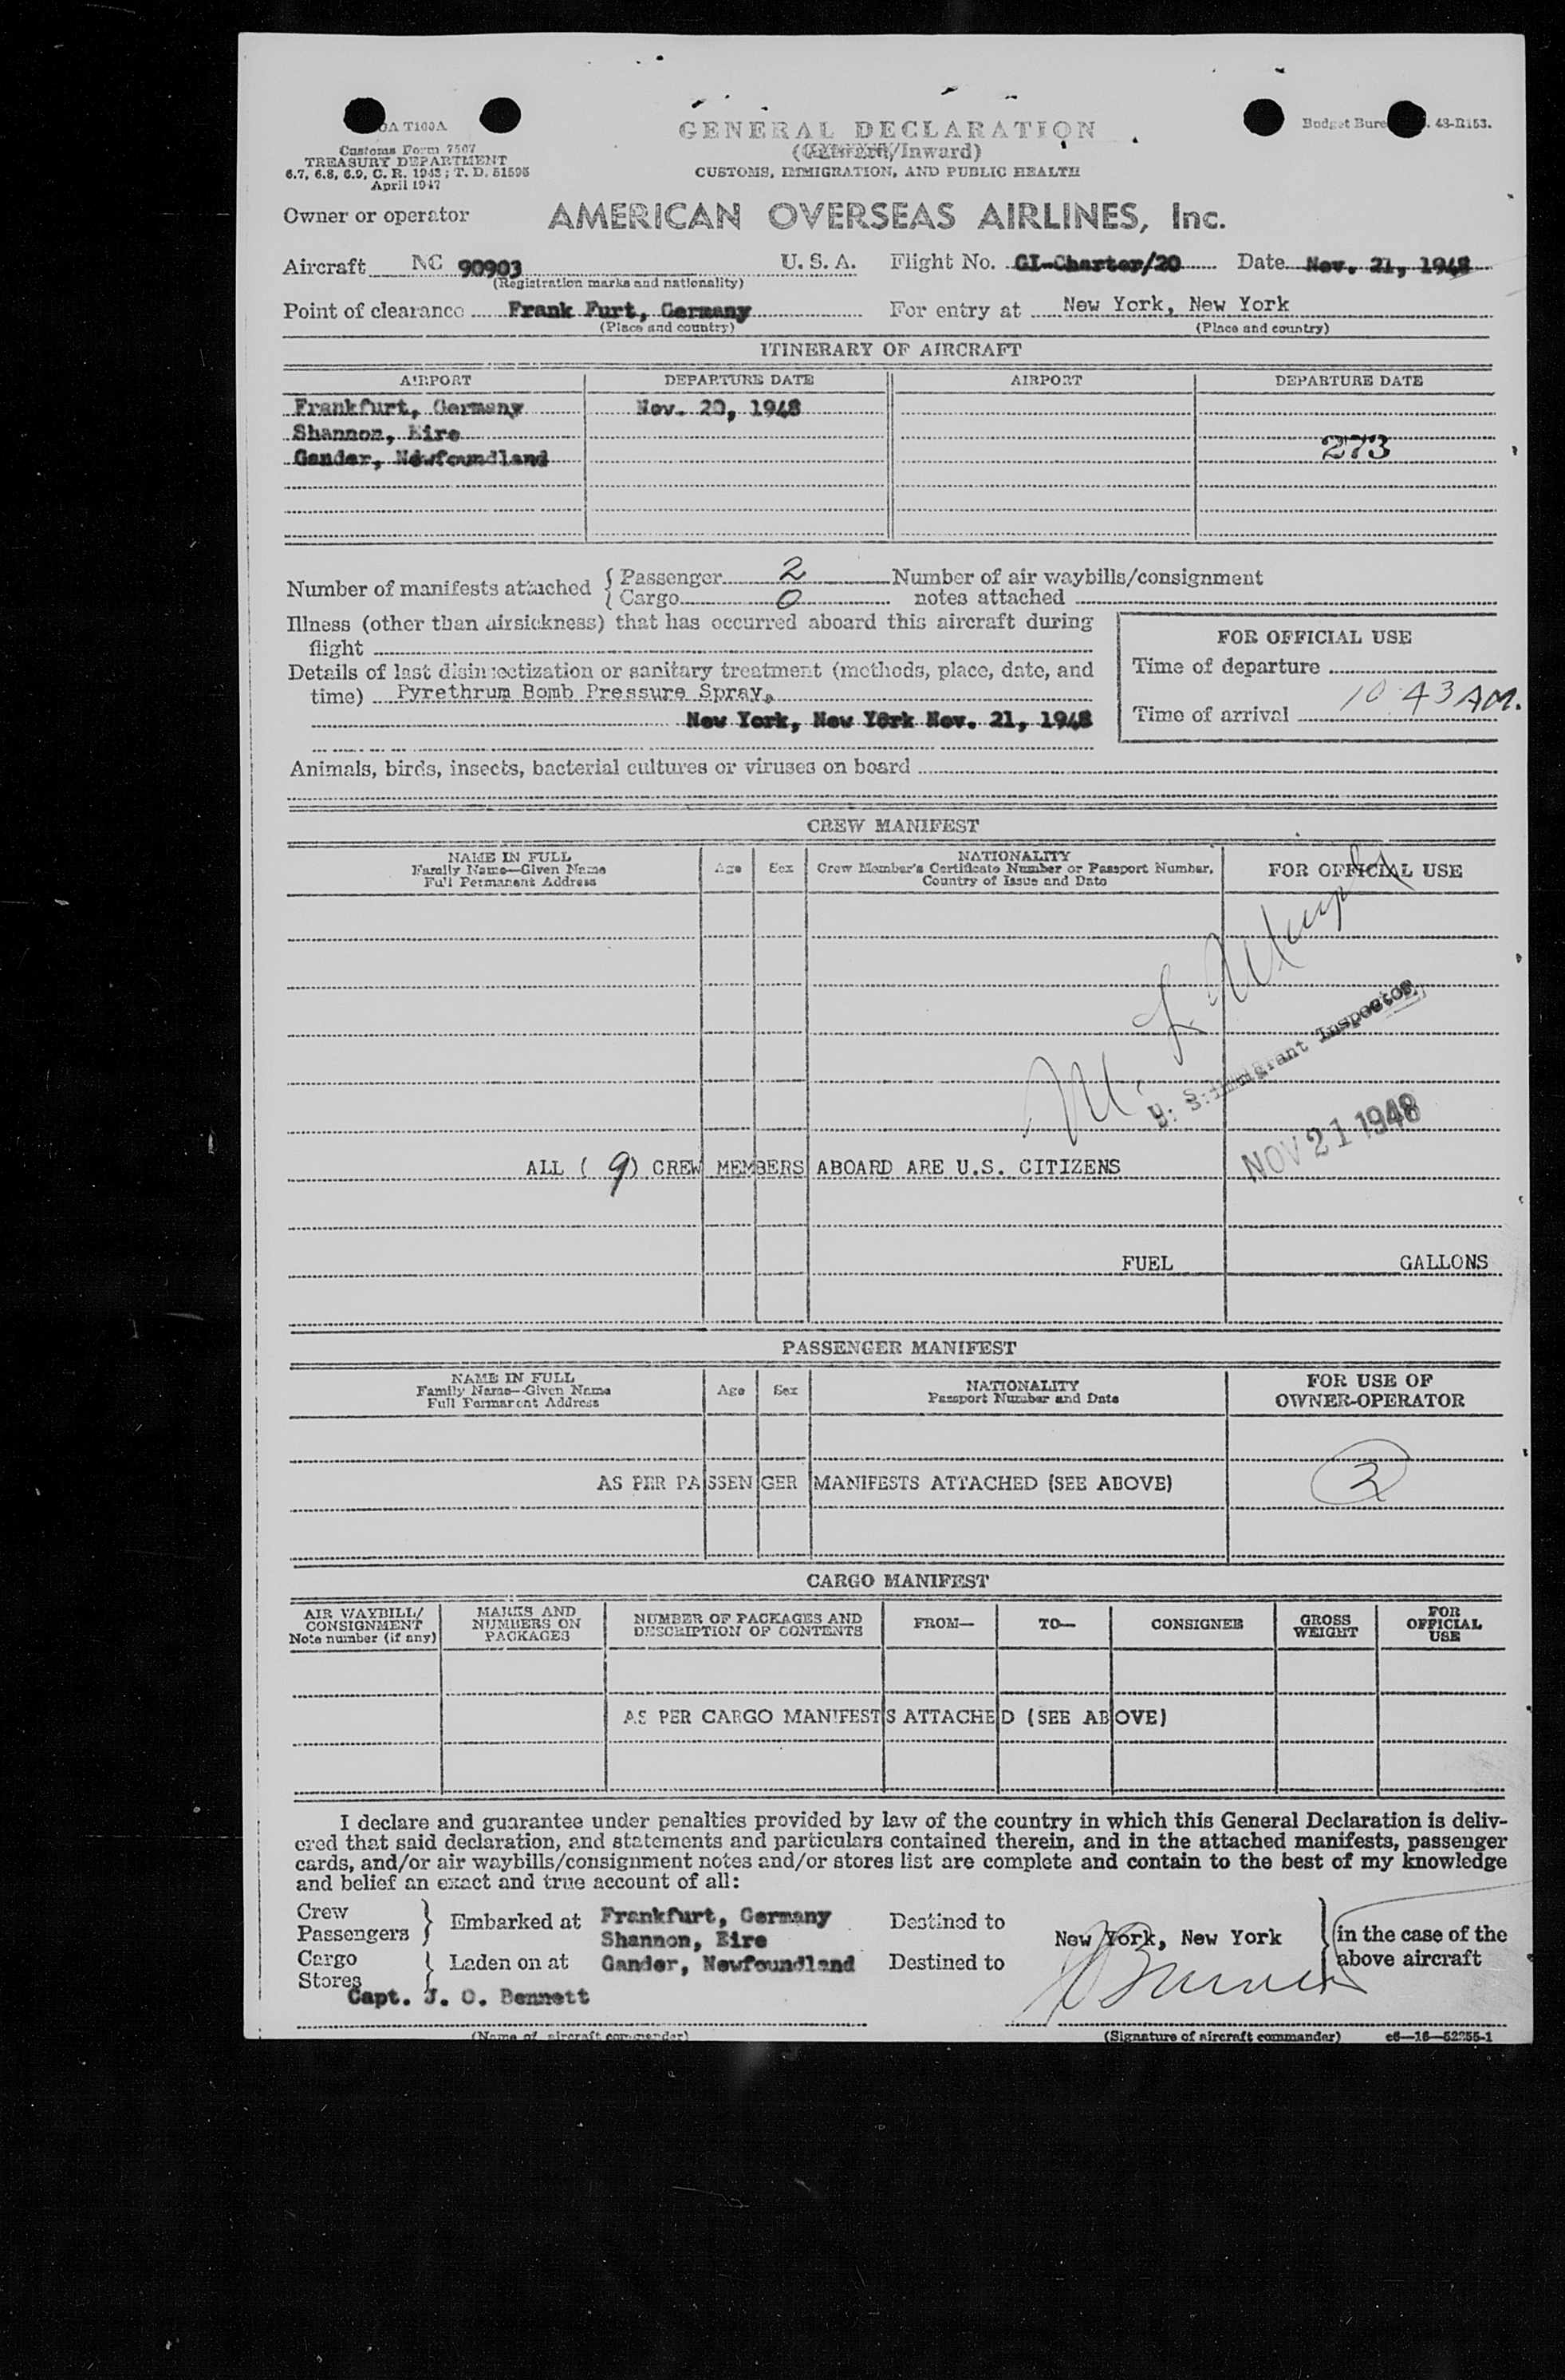 T100A
GENERAL DECLARATION
Budget 48-R153.
Customs Form 7507
(Outward/Inward)
TREASURY DEPARTMENT
6.7, 6.8, 6.9, C. R. 1943; T. D. 51595
CUSTOMS, IMMIGRATION, AND PUBLIC HEALTH
April 1947
Owner or operator AMERICAN OVERSEAS AIRLINES, Inc.
Aircraft NC 90903 U. S. A. Flight No. GI-Charter/20 Date Nov. 21, 1948
(Registration marks and nationality)
Point of clearance Frank Furt, Germany For entry at New York, New York
(Place and country) (Place and country)
ITINERARY OF AIRCRAFT
AIRPORT DEPARTURE DATE AIRPORT DEPARTURE DATE
Frankfurt, Germany Nov. 20, 1948
Shannon, Eire 273
Gander, Newfoundland
Number of manifests attached { Passenger 2 Number of air waybills/consignment
Cargo 0 notes attached
Illness (other than airsickness) that has occurred aboard this aircraft during
flight
FOR OFFICIAL USE
Details of last disinsectization or sanitary treatment (methods, place, date, and
Time of departure
time) Pyrethrum Bomb Pressure Spray,
New York, New York Nov. 21, 1948
Time of arrival 10 43 AM.
Animals, birds, insects, bacterial cultures or viruses on board
CREW MANIFEST
NAME IN FULL
Family Name—Given Name
Full Permanent Address
Age Sex
NATIONALITY
Crew Member's Certificate Number or Passport Number,
Country of Issue and Date
FOR OFFICIAL USE
M. L.
U. S. Immigrant Inspector
NOV 21 1948
ALL ( 9 ) CREW MEMBERS ABOARD ARE U.S. CITIZENS
FUEL GALLONS
PASSENGER MANIFEST
NAME IN FULL
Family Name—Given Name
Full Permanent Address
Age Sex
NATIONALITY
Passport Number and Date
FOR USE OF
OWNER-OPERATOR
AS PER PASSENGER MANIFESTS ATTACHED (SEE ABOVE) 2
CARGO MANIFEST
AIR WAYBILL/
CONSIGNMENT
Note number (if any)
MARKS AND
NUMBERS ON
PACKAGES
NUMBER OF PACKAGES AND
DESCRIPTION OF CONTENTS
FROM— TO— CONSIGNEE
GROSS
WEIGHT
FOR
OFFICIAL
USE
AS PER CARGO MANIFESTS ATTACHED (SEE ABOVE)
I declare and guarantee under penalties provided by law of the country in which this General Declaration is deliv-
ered that said declaration, and statements and particulars contained therein, and in the attached manifests, passenger
cards, and/or air waybills/consignment notes and/or stores list are complete and contain to the best of my knowledge
and belief an exact and true account of all:
Crew
Passengers } Embarked at Frankfurt, Germany Destined to
Shannon, Eire New York, New York } in the case of the
Cargo } Laden on at Gander, Newfoundland Destined to above aircraft
Stores
Capt. J. O. Bennett
(Name of aircraft commander) (Signature of aircraft commander) c6—16—52255-1